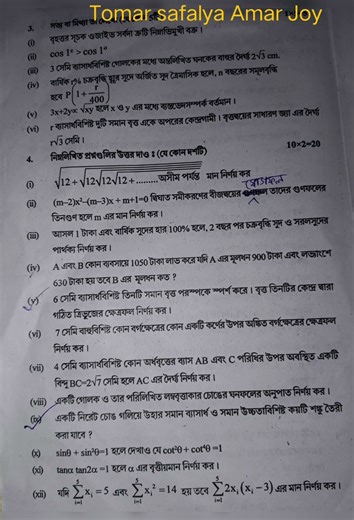 Tomar safalya Amar Joy
3. সত্য বা মিথ্যা
(i) বৃহত্তর সূচক ওজাইভ সর্বদা ক্রটি নিম্নাভিমুখী বক্র ।
(ii) cos 1° > cos 1ᶿ
(iii) 3 সেমি ব্যাসার্ধবিশিষ্ট গোলকের মধ্যে অন্তর্লিখিত ঘনকের বাহুর দৈর্ঘ্য 2√3 cm.
(iv) বার্ষিক r% চক্রবৃদ্ধি সুদে অর্জিত সুদ ত্রৈমাসিক হলে, n বছরের সমূলবৃদ্ধি
হবে P(1 + r/400)
(v) 3x+2y∝ √xy হলে x ও y এর মধ্যে ব্যস্তভেদসম্পর্ক বর্তমান ।
(vi) r ব্যাসার্ধবিশিষ্ট দুটি সমান বৃত্ত একে অপরের কেন্দ্রগামী । বৃত্তদ্বয়ের সাধারণ জ্যা এর দৈর্ঘ্য
r√3 সেমি ।
4. নিম্নলিখিত প্রশ্নগুলির উত্তর দাও : (যে কোন দশটি) 10×2=20
(i) √12+√12√12√12+.........অসীম পর্যন্ত মান নির্ণয় কর
যোগফল
(ii) (m−2)x²−(m−3)x + m+1=0 দ্বিঘাত সমীকরণের বীজদ্বয়ের তাদের গুণফলের
তিনগুণ হলে m এর মান নির্ণয় কর ।
(iii) আসল 1 টাকা এবং বার্ষিক সুদের হার 100% হলে, 2 বছর পর চক্রবৃদ্ধি সুদ ও সরলসুদের
পার্থক্য নির্ণয় কর ।
(iv) A এবং B কোন ব্যবসায়ে 1050 টাকা লাভ করে যদি A এর মূলধন 900 টাকা এবং লভ্যাংশে
630 টাকা হয় তবে B এর মূলধন কত ?
(v) 6 সেমি ব্যাসার্ধবিশিষ্ট তিনটি সমান বৃত্ত পরস্পরকে স্পর্শ করে । বৃত্ত তিনটির কেন্দ্র দ্বারা
গঠিত ত্রিভুজের ক্ষেত্রফল নির্ণয় কর ।
(vi) 7 সেমি বাহুবিশিষ্ট কোন বর্গক্ষেত্রের কোন একটি কর্ণের উপর অঙ্কিত বর্গক্ষেত্রের ক্ষেত্রফল
নির্ণয় কর ।
(vii) 4 সেমি ব্যাসার্ধবিশিষ্ট কোন অর্ধবৃত্তের ব্যাস AB এবং C পরিধির উপর অবস্থিত একটি
বিন্দু BC=2√7 সেমি হলে AC এর দৈর্ঘ্য নির্ণয় কর ।
(viii) একটি গোলক ও তার পরিলিখিত লম্ববৃত্তাকার চোঙের ঘনফলের অনুপাত নির্ণয় কর ।
(ix) একটি নিরেট চোঙ গলিয়ে উহার সমান ব্যাসার্ধ ও সমান উচ্চতাবিশিষ্ট কয়টি শঙ্কু তৈরী
করা যাবে ?
(x) sinθ + sin²θ=1 হলে দেখাও যে cot²θ + cot⁴θ =1
(xi) tanα tan2α =1 হলে α এর বৃত্তীয়মান নির্ণয় কর ।
(xii) যদি ∑ᵢ₌₁⁵ xᵢ = 5 এবং ∑ᵢ₌₁⁵ xᵢ² =14 হয় তবে ∑ᵢ₌₁⁵ 2xᵢ (xᵢ −3) এর মান নির্ণয় কর ।